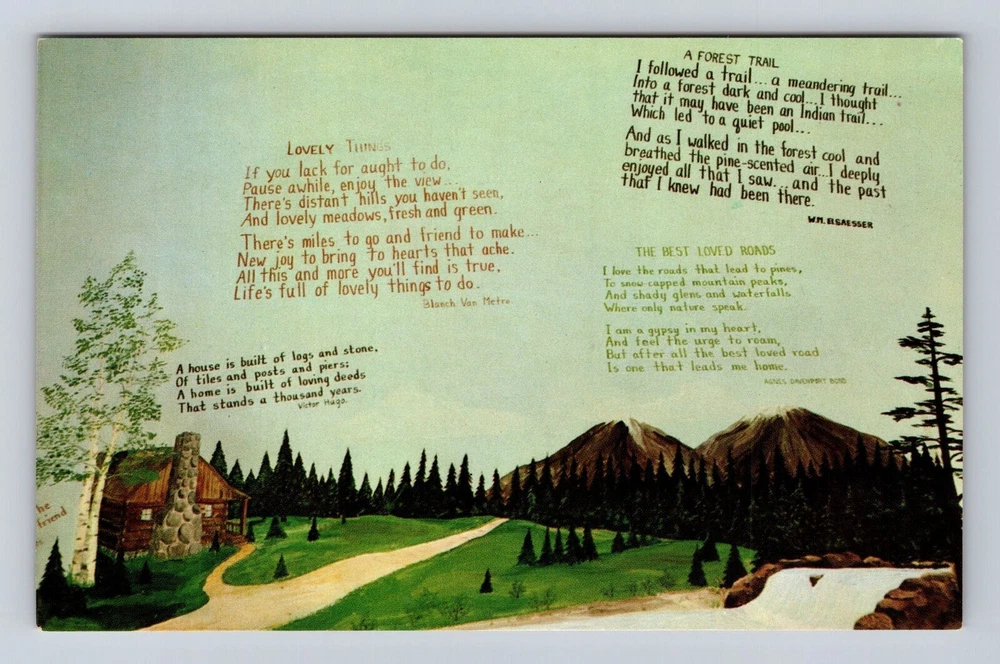 LOVELY THINGS
If you lack for aught to do,
Pause awhile, enjoy the view...
There's distant hills you haven't seen,
And lovely meadows, fresh and green.
There's miles to go and friend to make...
New joy to bring to hearts that ache.
All this and more you'll find is true,
Life's full of lovely things to do.
Blanch Van Metre
A FOREST TRAIL
I followed a trail... a meandering trail...
Into a forest dark and cool...I thought
that it may have been an Indian trail...
Which led to a quiet pool...
And as I walked in the forest cool and
breathed the pine-scented air...I deeply
enjoyed all that I saw... and the past
that I knew had been there.
WM. ELSAESSER
THE BEST LOVED ROADS
I love the roads that lead to pines,
To snow-capped mountain peaks,
And shady glens and waterfalls
Where only nature speak.
I am a gypsy in my heart,
And feel the urge to roam,
But after all the best loved road
Is one that leads me home.
AGNES DAVENPORT BOND
A house is built of logs and stone,
Of tiles and posts and piers;
A home is built of loving deeds
That stands a thousand years.
Victor Hugo.
he
friend